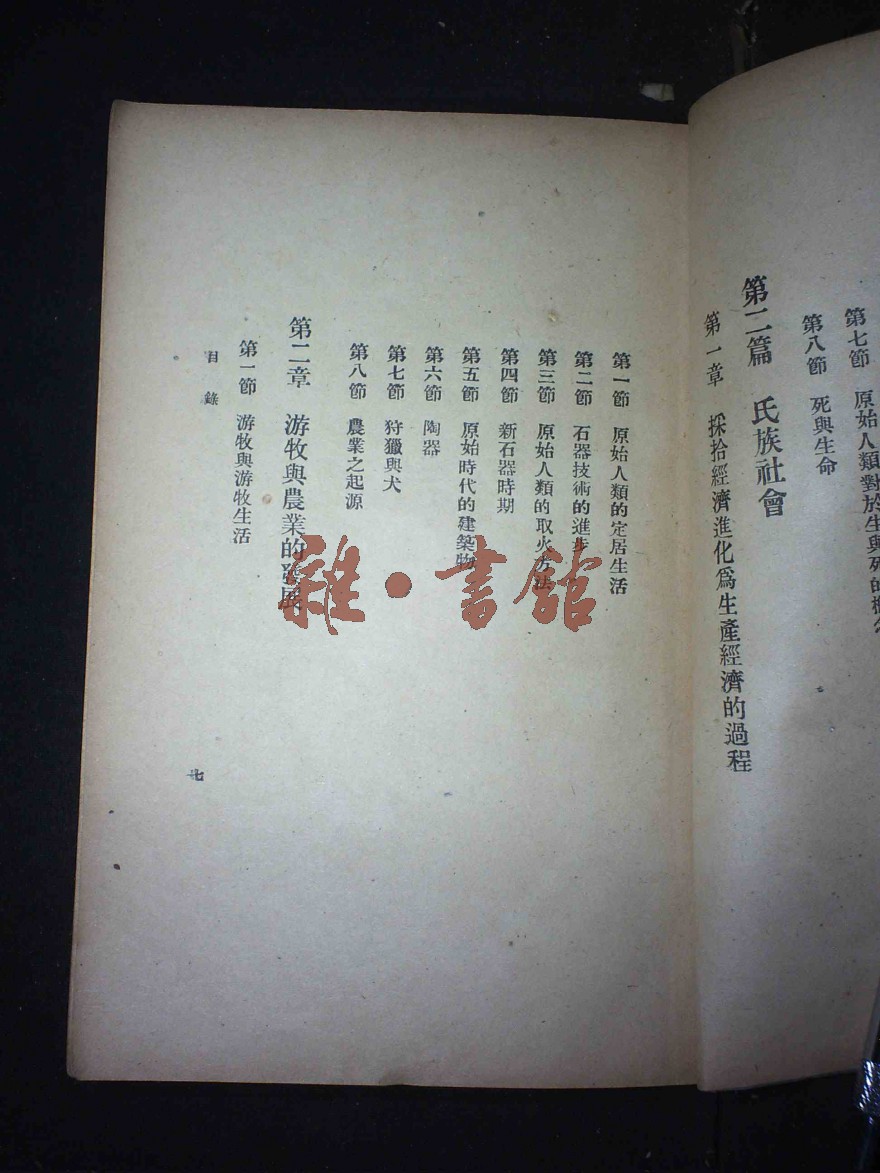 第七節　原始人類對於生與死的
第八節　死與生命
第二篇　氏族社會
第一章　採拾經濟進化爲生產經濟的過程
第一節　原始人類的定居生活
第二節　石器技術的進步
第三節　原始人類的取火方法
第四節　新石器時期
第五節　原始時代的建築物
第六節　陶器
第七節　狩獵與犬
第八節　農業之起源
第二章　游牧與農業的發展
第一節　游牧與游牧生活
目錄
七
雜·書館